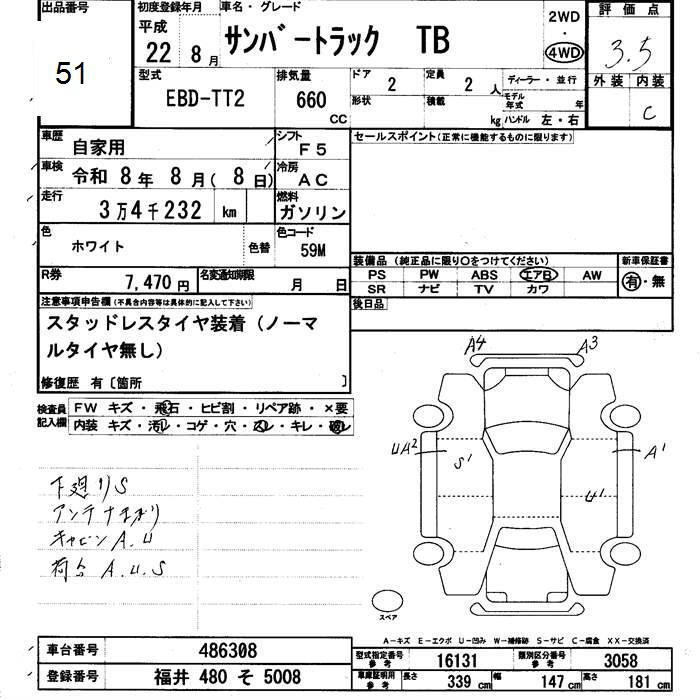 出品番号 51
初度登録年月 平成 22年 8月
車名・グレード サンバートラック TB
2WD 4WD
評価点 3.5
外装 内装 C
型式 EBD-TT2
排気量 660 CC
ドア 2 定員 2人
形状 積載 kg
ディーラー・並行
モデル年式 年
ハンドル 左・右
車歴 自家用
シフト F5
車検 令和 8年 8月( 8日)
冷房 AC
走行 3万4千232 km
燃料 ガソリン
色 ホワイト 色替
色コード 59M
R券 7,470円 名変通知期限 月 日
セールスポイント(正常に機能するものに限ります)
装備品 (純正品に限り○をつけてください) 新車保証書
PS PW ABS エアB AW 有・無
SR ナビ TV カワ
後日品
注意事項申告欄(不具合内容等は具体的に記入して下さい)
スタッドレスタイヤ装着(ノーマ
ルタイヤ無し)
修復歴 有〔箇所 〕
検査員記入欄
FW キズ・飛石・ヒビ割・リペア跡・×要
内装 キズ・汚レ・コゲ・穴・スレ・キレ・破レ
A4 A3
UA2 S1 A1
U1
下廻りS
アンテナまがり
キャビンA.U
荷台 A.U.S
スペア
A-キズ E-エクボ U-凹み W-補修跡 S-サビ C-腐食 XX-交換済
車台番号 486308
登録番号 福井 480 そ 5008
型式指定番号 参考 16131 類別区分番号 参考 3058
車庫証明用 参考 長さ 339 cm 幅 147 cm 高さ 181 cm